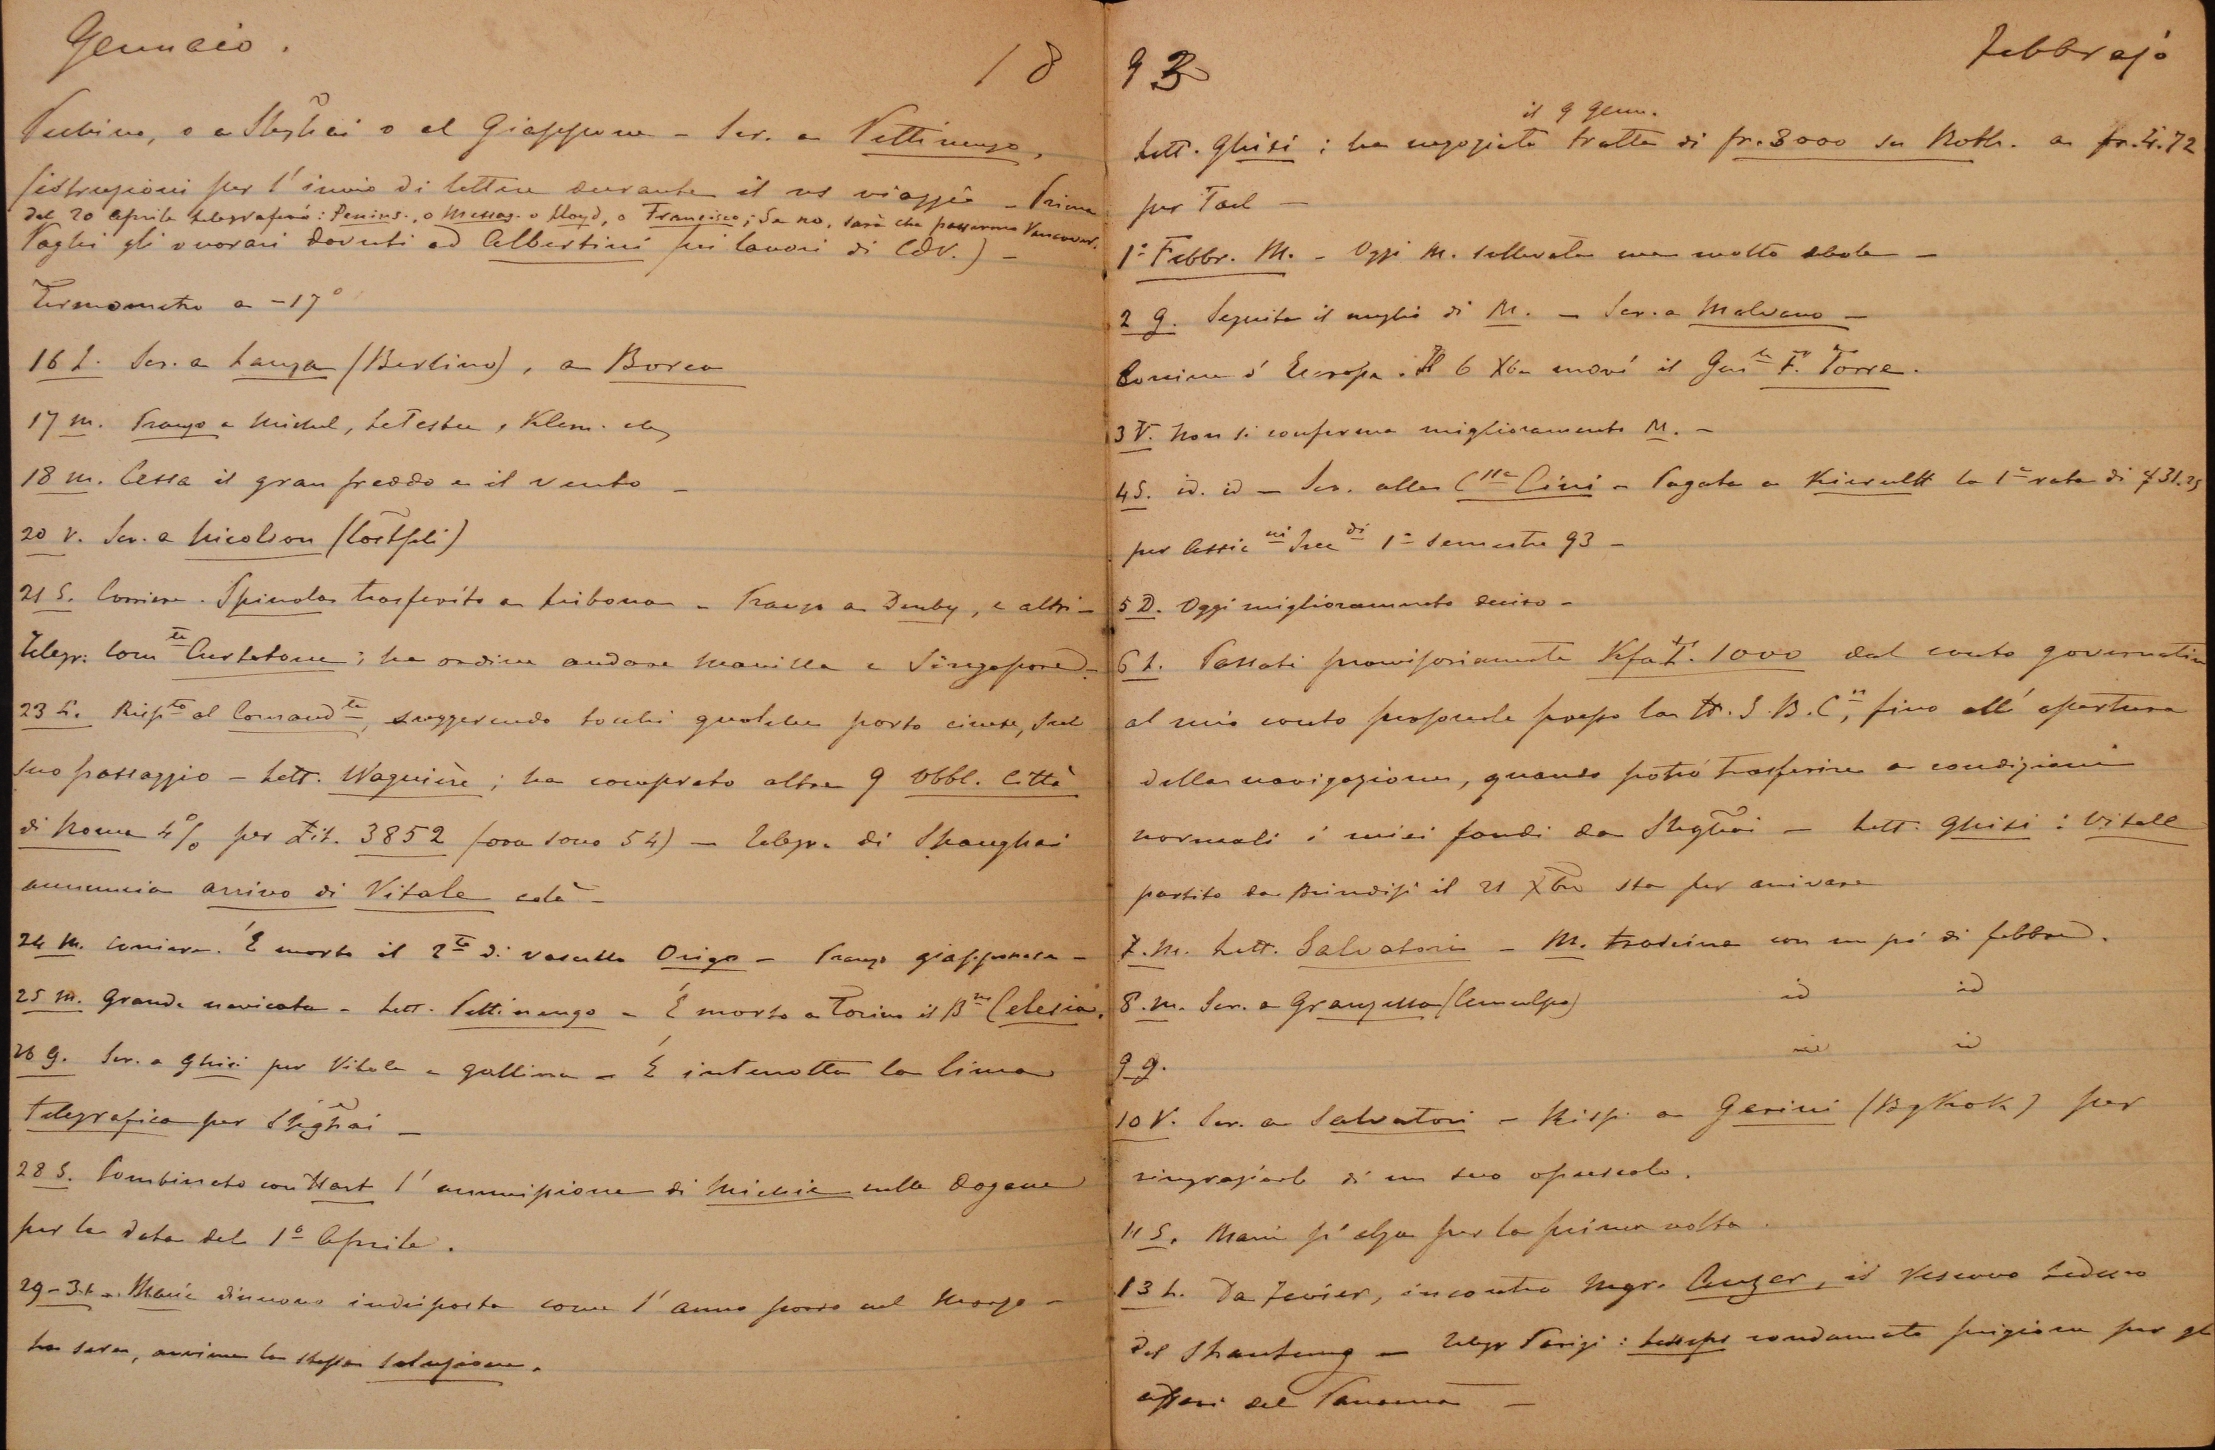 Gennaio.
18
Pechino, o a Shghai o al Giappone - Scr. a Pettinengo,
(istruzioni per l'invio di lettere durante il ns viaggio - Prima
del 20 Aprile telegraferò: Penins., o Messag. o Lloyd, o Francisco; Se no, sarà che passeremo Vancouver.
Paghi gli onorari dovuti ad Albertini pei lavori di CDV.) -
Termometro a -17°
16 L. Scr. a Lanza (Berlino), a Borea
17 M. Pranzo a Michel, LeTestu, Klem.
18 M. Cessa il gran freddo e il vento -
20 V. Scr. a Nicolson (Costpli)
21 S. Corriere. Spinola trasferito a Lisbona - Pranzo a Denby, e altri -
Telegr: Com te Curtatone; ha ordine andare Manilla e Singapore -
23 L. Risp to al Comand te, suggerendo tocchi qualche porto cinese, sul
suo passaggio - Lett. Wagnière; ha comprato altre 9 Obbl. Città
di Roma 4% per Lit. 3852 (ora sono 54) - Telegr. di Shanghai
annuncia arrivo di Vitale colà -
24 M. Corriere. È morto il 2 te di vascello Origo - Pranzo giapponese -
25 M. Grande nevicata - Lett. Pettinengo - È morto a Torino il B ne Celesia.
26 G. Scr. a Ghisi per Vitale e Gallina - È interrotta la linea
telegrafica per Shghai -
28 S. Combinato con Hart l'ammissione di Michie nelle Dogane
per la data del 1° Aprile.
29-31 - Marie di nuovo indisposta come l'anno scorso nel Marzo -
La sera, avviene la stessa soluzione.
93
Febbrajo
il 9 Genn.
Lett. Ghisi: ha negoziato tratta di fr. 8000 su Roth. a fr. 4.72
per Tael -
1° Febbr. M. - Oggi M. sollevata ma molto debole -
2 G. Seguita il meglio di M. - Scr. a Malvano -
Corriere d'Europa. Il 6 Xbre morì il Gen le F. Torre.
3 V. Non si conferma miglioramento M. -
4 S. id. id - Scr. alla C ssa Cini - Pagata a Kierulff la 1a rata di 731.25
per Assic ni 1° semestre 93 -
5 D. Oggi miglioramento deciso -
6 L. Passati provvisoriamente 1000 dal conto governativo
al mio conto personale presso la H. S. B. C n, fino all'apertura
della navigazione, quando potrò trasferire a condizioni
normali i miei fondi da Shghai - Lett. Ghisi: Vitale
partito da Brindisi il 21 Xbre sta per arrivare
7. M. Lett. Salvatori - M. trascina con un pò di febbre.
8. M. Scr. a Granzella (Cemulpo) id id
9 G. id id
10 V. Scr. a Salvatori - Risp. a Gerini (BgKok) per
ringraziarlo di un suo opuscolo.
11 S. Marie s'alza per la prima volta.
13 L. Da Favier, incontro Mgr. Anzer, il Vescovo tedesco
del Shantung - Telegr Parigi: Lesseps condannato prigione per gli
affari del Panama -